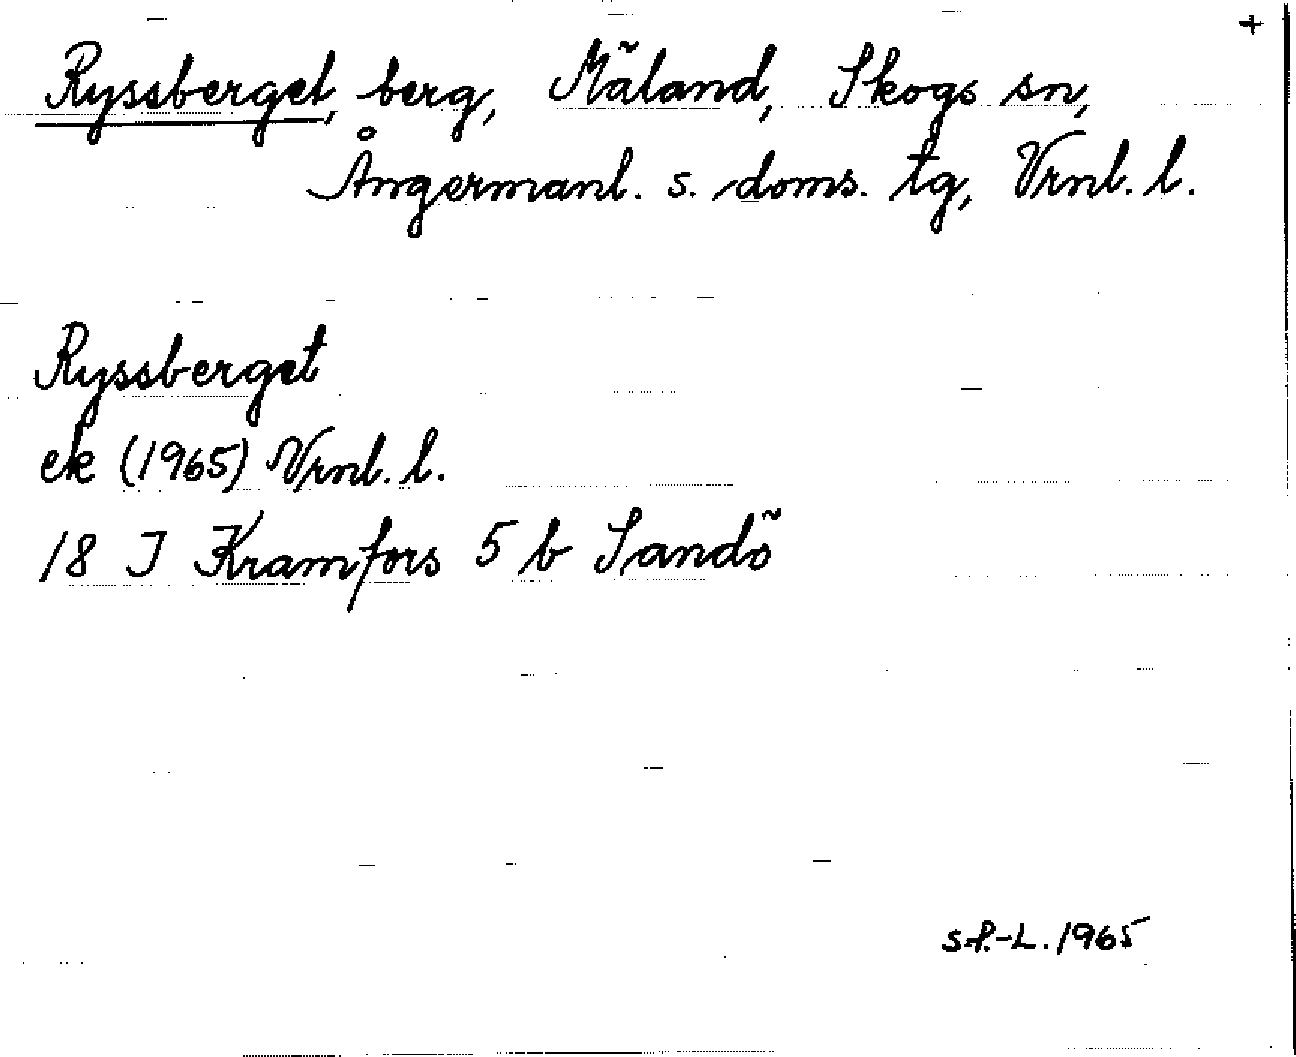 +
Ryssberget, berg, Mäland, Skogs sn,
Ångermanl. s. doms. tg, Vrnl. l.
Ryssberget
ek (1965) Vrnl. l.
18 I Kramfors 5 b Sandö
S.P.-L. 1965